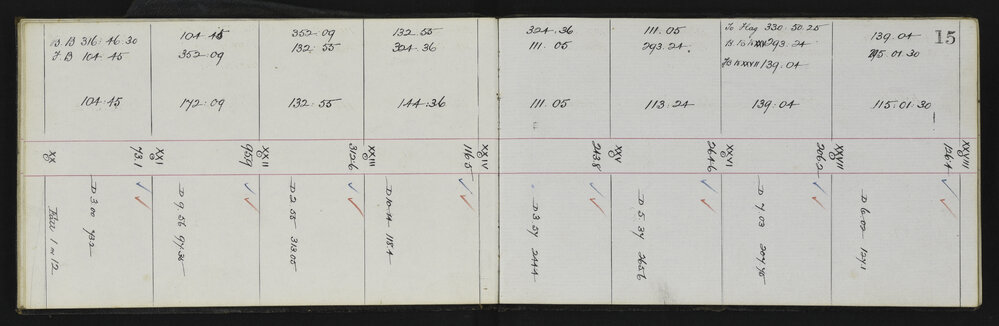 B.B 316:46:30
F.B 104.45
104:45
352:09
352:09
132:55
132:55
324.36
324.36
111.05
111.05
293.24
To Flag 330.50.25
293.24
139.04
139.04
115.01.30
15
104:45
172:09
132:55
144:36
111.05
113:24
139:04
115:01:30
XX
73.1
XXI
XXII
312.6
XXIII
116.5
XXIV
243.8
XXV
264.6
XXVI
206.2
XXVII
126.4
XXVIII
1 in 12
D 3.00 73.2
D 9.56 97.35
D 2.55 313.05
D 10.14 118.4
D 3.54 244.4
D 5.34 265.6
D 7.03 207.75
D 6.02 127.1